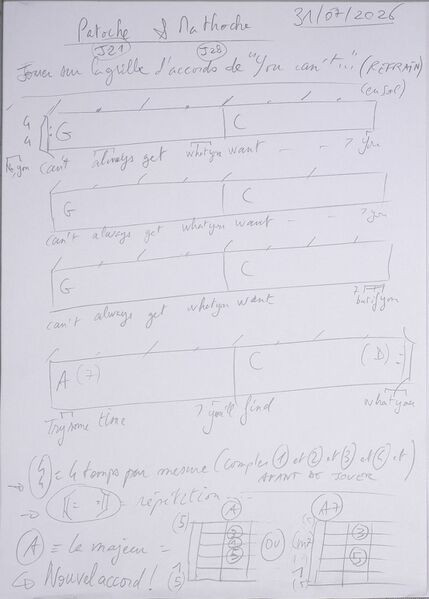 Patoche & Mathoche 31/07/2026
J21 J28
Jouer sur la grille d'accords de "You can't..." (REFRAIN)
(en sol)
4 4 G C
No, you can't always get what you want - - 7 you
G C
can't always get what you want - - 7 you
G C
can't always get what you want 7 but if you
A (7) C (D)
Try some time 7 you'll find what you
4 4 = 4 temps par mesure (compter 1 et 2 et 3 et 4 et)
AVANT DE JOUER
= répétition
A A7
(5) 3 1 3 OU 3 5
A = La majeur =
Nouvel accord! 1 (5) 1 (5)